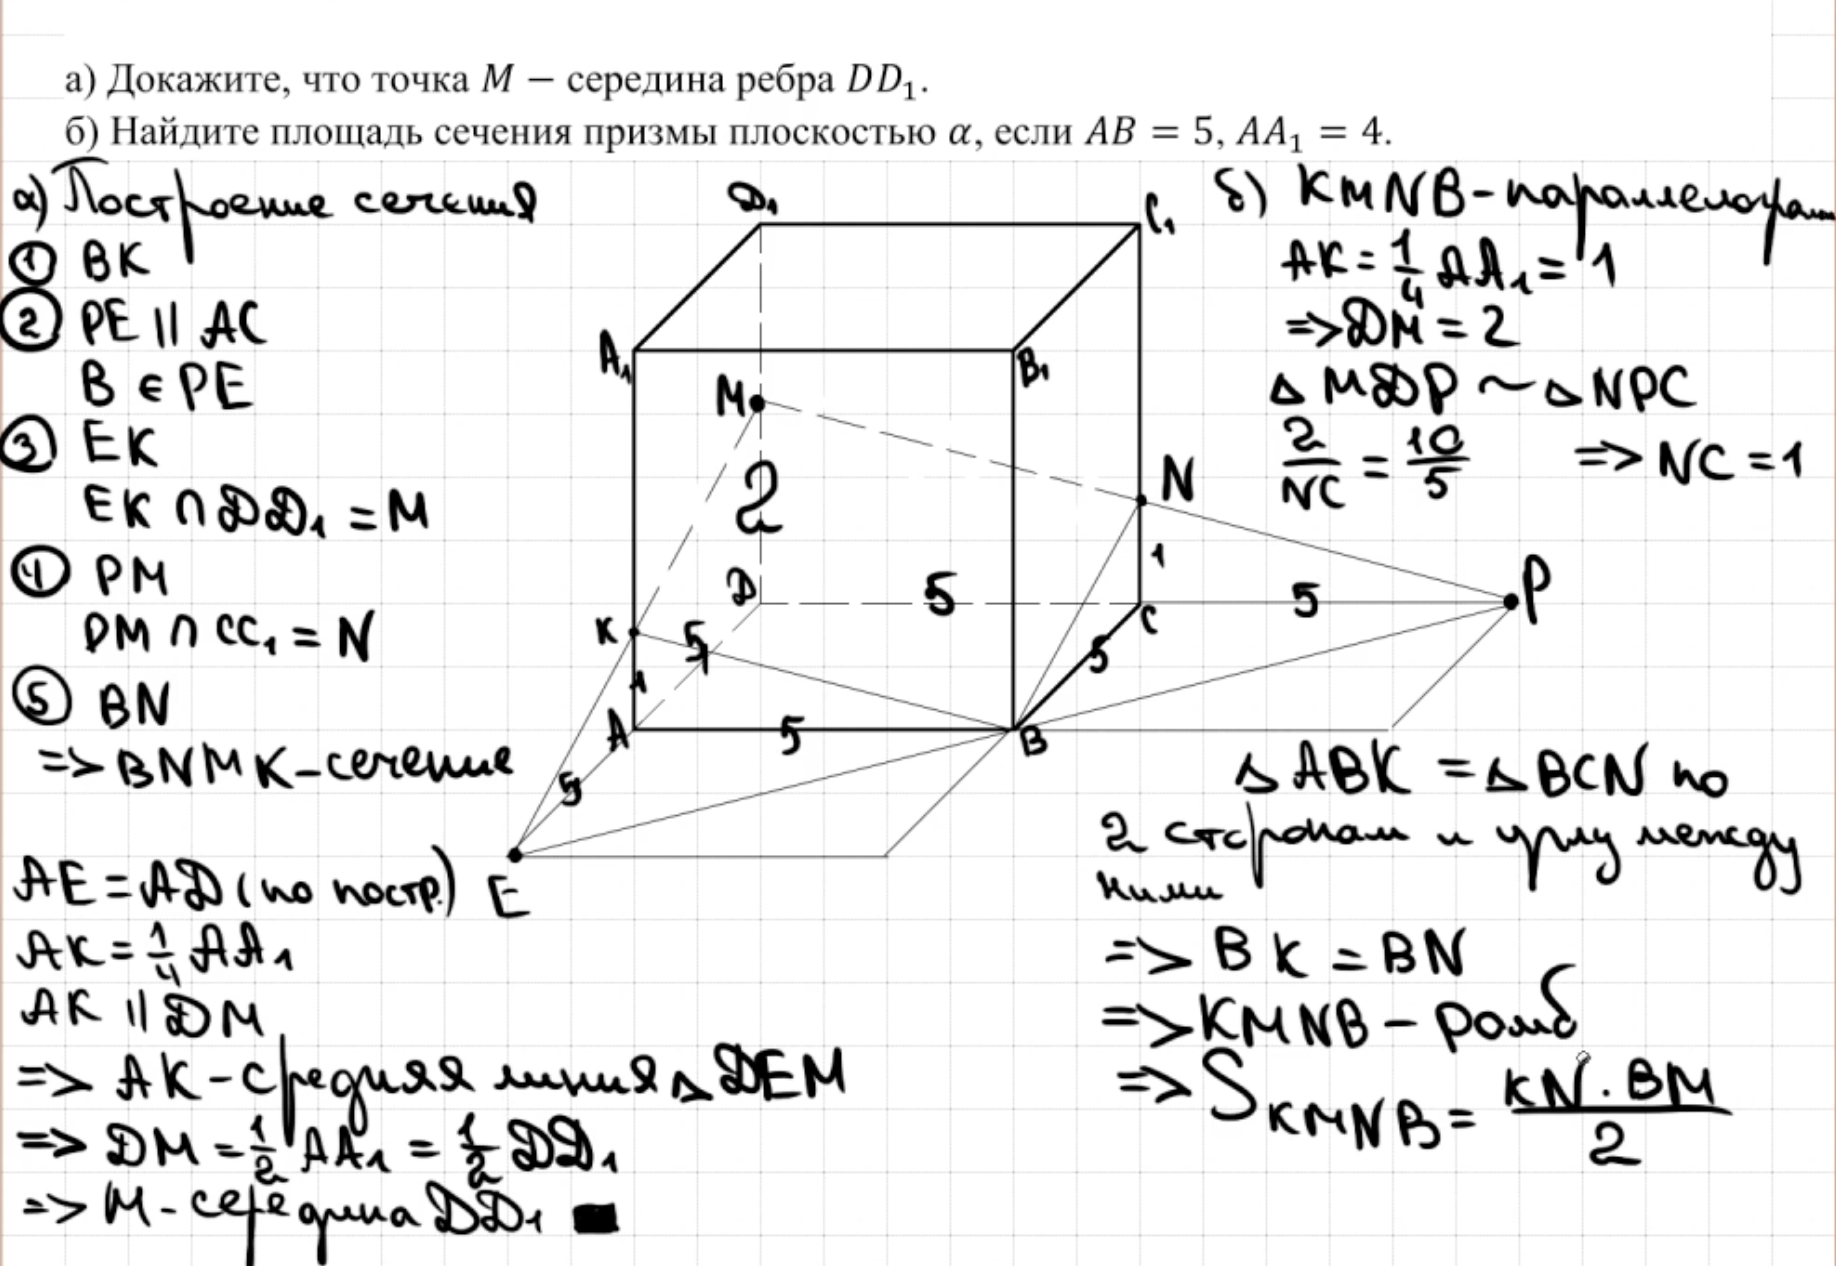 а) Докажите, что точка M − середина ребра DD₁.
б) Найдите площадь сечения призмы плоскостью α, если AB = 5, AA₁ = 4.
а) Построение сечения
① BK
② PE || AC
B ∈ PE
③ EK
EK ∩ DD₁ = M
④ PM
PM ∩ CC₁ = N
⑤ BN
=> BNMK - сечение
AE = AD (по постр.)
AK = 1/4 AA₁
AK || DM
=> AK - средняя линия △ DEM
=> DM = 1/2 AA₁ = 1/2 DD₁
=> M - середина DD₁ ■
D₁
C₁
A₁
B₁
M
2
N
1
D
5
C
5
P
K
5
5
1
A
5
B
5
E
б) KMNB - параллелограмм
AK = 1/4 AA₁ = 1
=> DM = 2
△ MDP ~ △ NPC
2/NC = 10/5 => NC = 1
△ ABK = △ BCN по
2 сторонам и углу между
ними
=> BK = BN
=> KMNB - ромб
=> S KMNB = KN · BM / 2